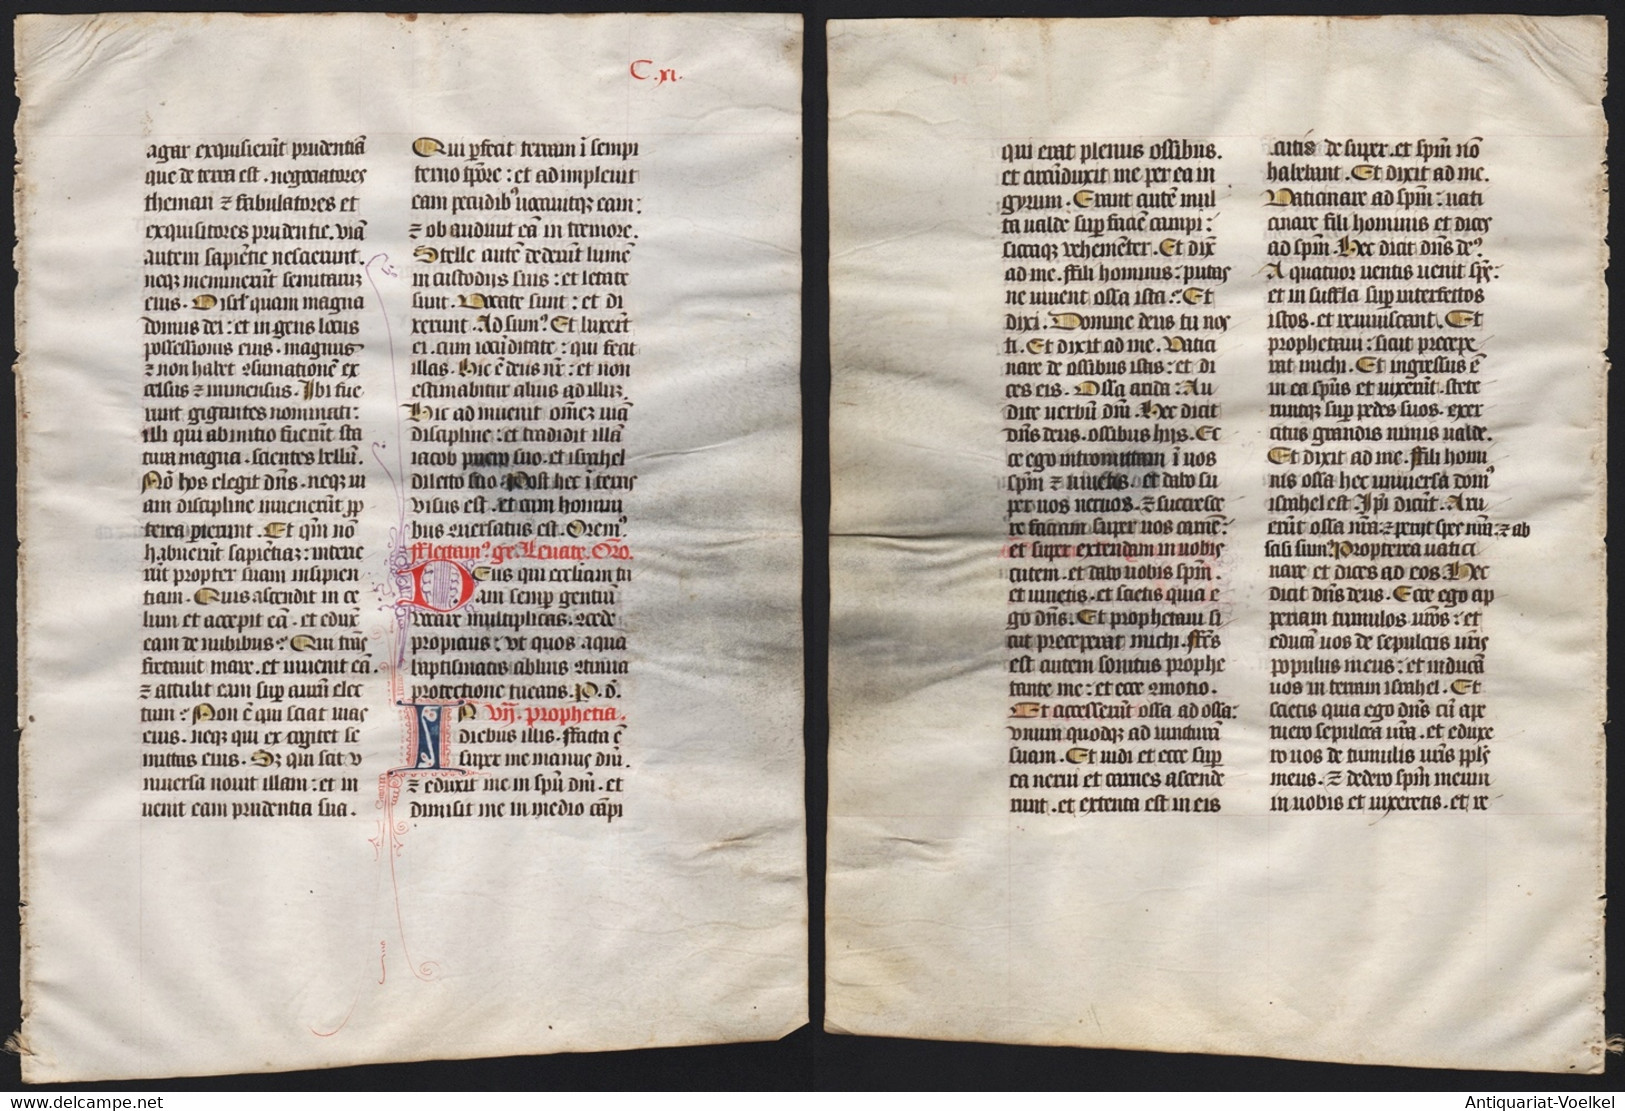 C.xi.
agar exquisierūt prudentiā
que de terra est . negociatores
theman ⁊ fabulatores et
exquisitores prudentie . viā
autem sapiētie nescierunt .
neqz meminerūt semitarūz
eius . O isrl' quam magna
domus dei : et ingens locus
possessionis eius . magnus
⁊ non habet 9sumationē ex
celsus ⁊ immensus . Ibi fue
runt gigantes nominati :
illi qui ab initio fuerūt sta
tura magna . scientes bellū .
Nō hos elegit dn̄s . neqz vi
am discipline invenerūt pp
terea perierunt . Et qm̄ nō
habuerūt sapiētiaz : interie
rūt propter suam insipien
tiam . Quis ascendit in ce
lum et accepit eā . et edux̄
eam de nubibus : Qui trās
fretavit mare . et invenit eā .
⁊ attulit eam sup aurū elec
tum : Non ē qui sciat vias
eius . neqz qui excogitet se
mitas eius . Sz qui scit v
niversa novit illam : et in
venit eam prudentia sua .
Qui pfecit terram ī sempi
terno tpōre : et ad implevit
eam pecudibꝰ
⁊ ob audivit eā in tremore .
Stelle autē dederūt lumē
in custodijs suis : et letate
sunt . Vocate sunt : et di
xerunt . Ad sumꝰ Et luxerūt
ei . cum iocūditate : qui fecit
illas . Hic ē deus nr̄ : et non
estimabitur alius ad illūz .
Hic ad invenit omēz viā
discipline : et tradidit illā
iacob puero suo . et israhel
dilecto suo Post hec ī terris
visus est . et cum homini
bus 9versatus est . Oremꝰ
fflectamꝰ ge . Levate . Oro .
Deus qui eccliam tu
am semp gentiū
vocacōe multiplicas . 9cede
propicius : vt quos aqua
baptismatis abluis 9tinua
protectione tuearis . P. d̄.
vij . prophetia .
IN diebus illis . ffacta ē
super me manus dn̄i .
⁊ eduxit me in spū dn̄i . et
dimisit me in medio cāpi
qui erat plenus ossibus .
et circūduxit me per ea in
gyrum . Erant autē mul
ta valde sup faciē campi :
siccaqz vehemēter . Et dix̄
ad me . ffili hominis : putas
ne vivent ossa ista : Et
dixi . Domine deus tu nos
ti . Et dixit ad me . Vatici
nare de ossibus istis : et di
ces eis . Ossa arida : Au
dite verbū dn̄i . Hec dicit
dn̄s deus . ossibus hijs . Ec
ce ego intromittam ī vos
spm̄ ⁊ vivetis . et dabo su
per vos nervos . ⁊ succresce
re faciam super vos carnē :
et super extendam in vobis
cutem . et dabo vobis spm̄ .
et vivetis . et scietis quia e
go dn̄s . Et prophetavi si
cut preceperat michi . ffcūs
est autem sonitus prophe
tante me : et ecce 9motio .
Et accesserūt ossa ad ossa :
vnum quodqz ad iuncturā
suam . Et vidi et ecce sup
ea nervi et carnes ascende
runt . et extenta est in eis
cutis de super . et spm̄ nō
habebant . Et dixit ad me .
Vaticinare ad spm̄ : vati
cinare fili hominis et dices
ad spm̄ . Hec dicit dn̄s deꝰ
A quatuor ventis veni spc̄ :
et in suffla sup interfectos
istos . et reviviscant . Et
prophetavi : sicut precepe
rat michi . Et ingressus ē
in ea spūs et vixerūt . stete
runtqz sup pedes suos . exer
citus grandis nimis valde .
Et dixit ad me . ffili homi
nis ossa hec vniversa domꝰ
israhel est . Ipi dicūt . Aru
erūt ossa nr̄a : ⁊ perijt spes nr̄a : ⁊ ab
scisi sumꝰ Propterea vatici
nare et dices ad eos . Hec
dicit dn̄s deus . Ecce ego ap
periam tumulos vr̄os : et
educā vos de sepulcris vr̄is
populus meus : et inducā
vos in terram israhel . Et
scietis quia ego dn̄s cū ape
ruero sepulcra vr̄a . et eduxe
ro vos de tumulis vr̄is pple
meus . ⁊ dedero spm̄ meum
in vobis et vixeretis . et re
Antiquariat-Voelkel
www.delcampe.net